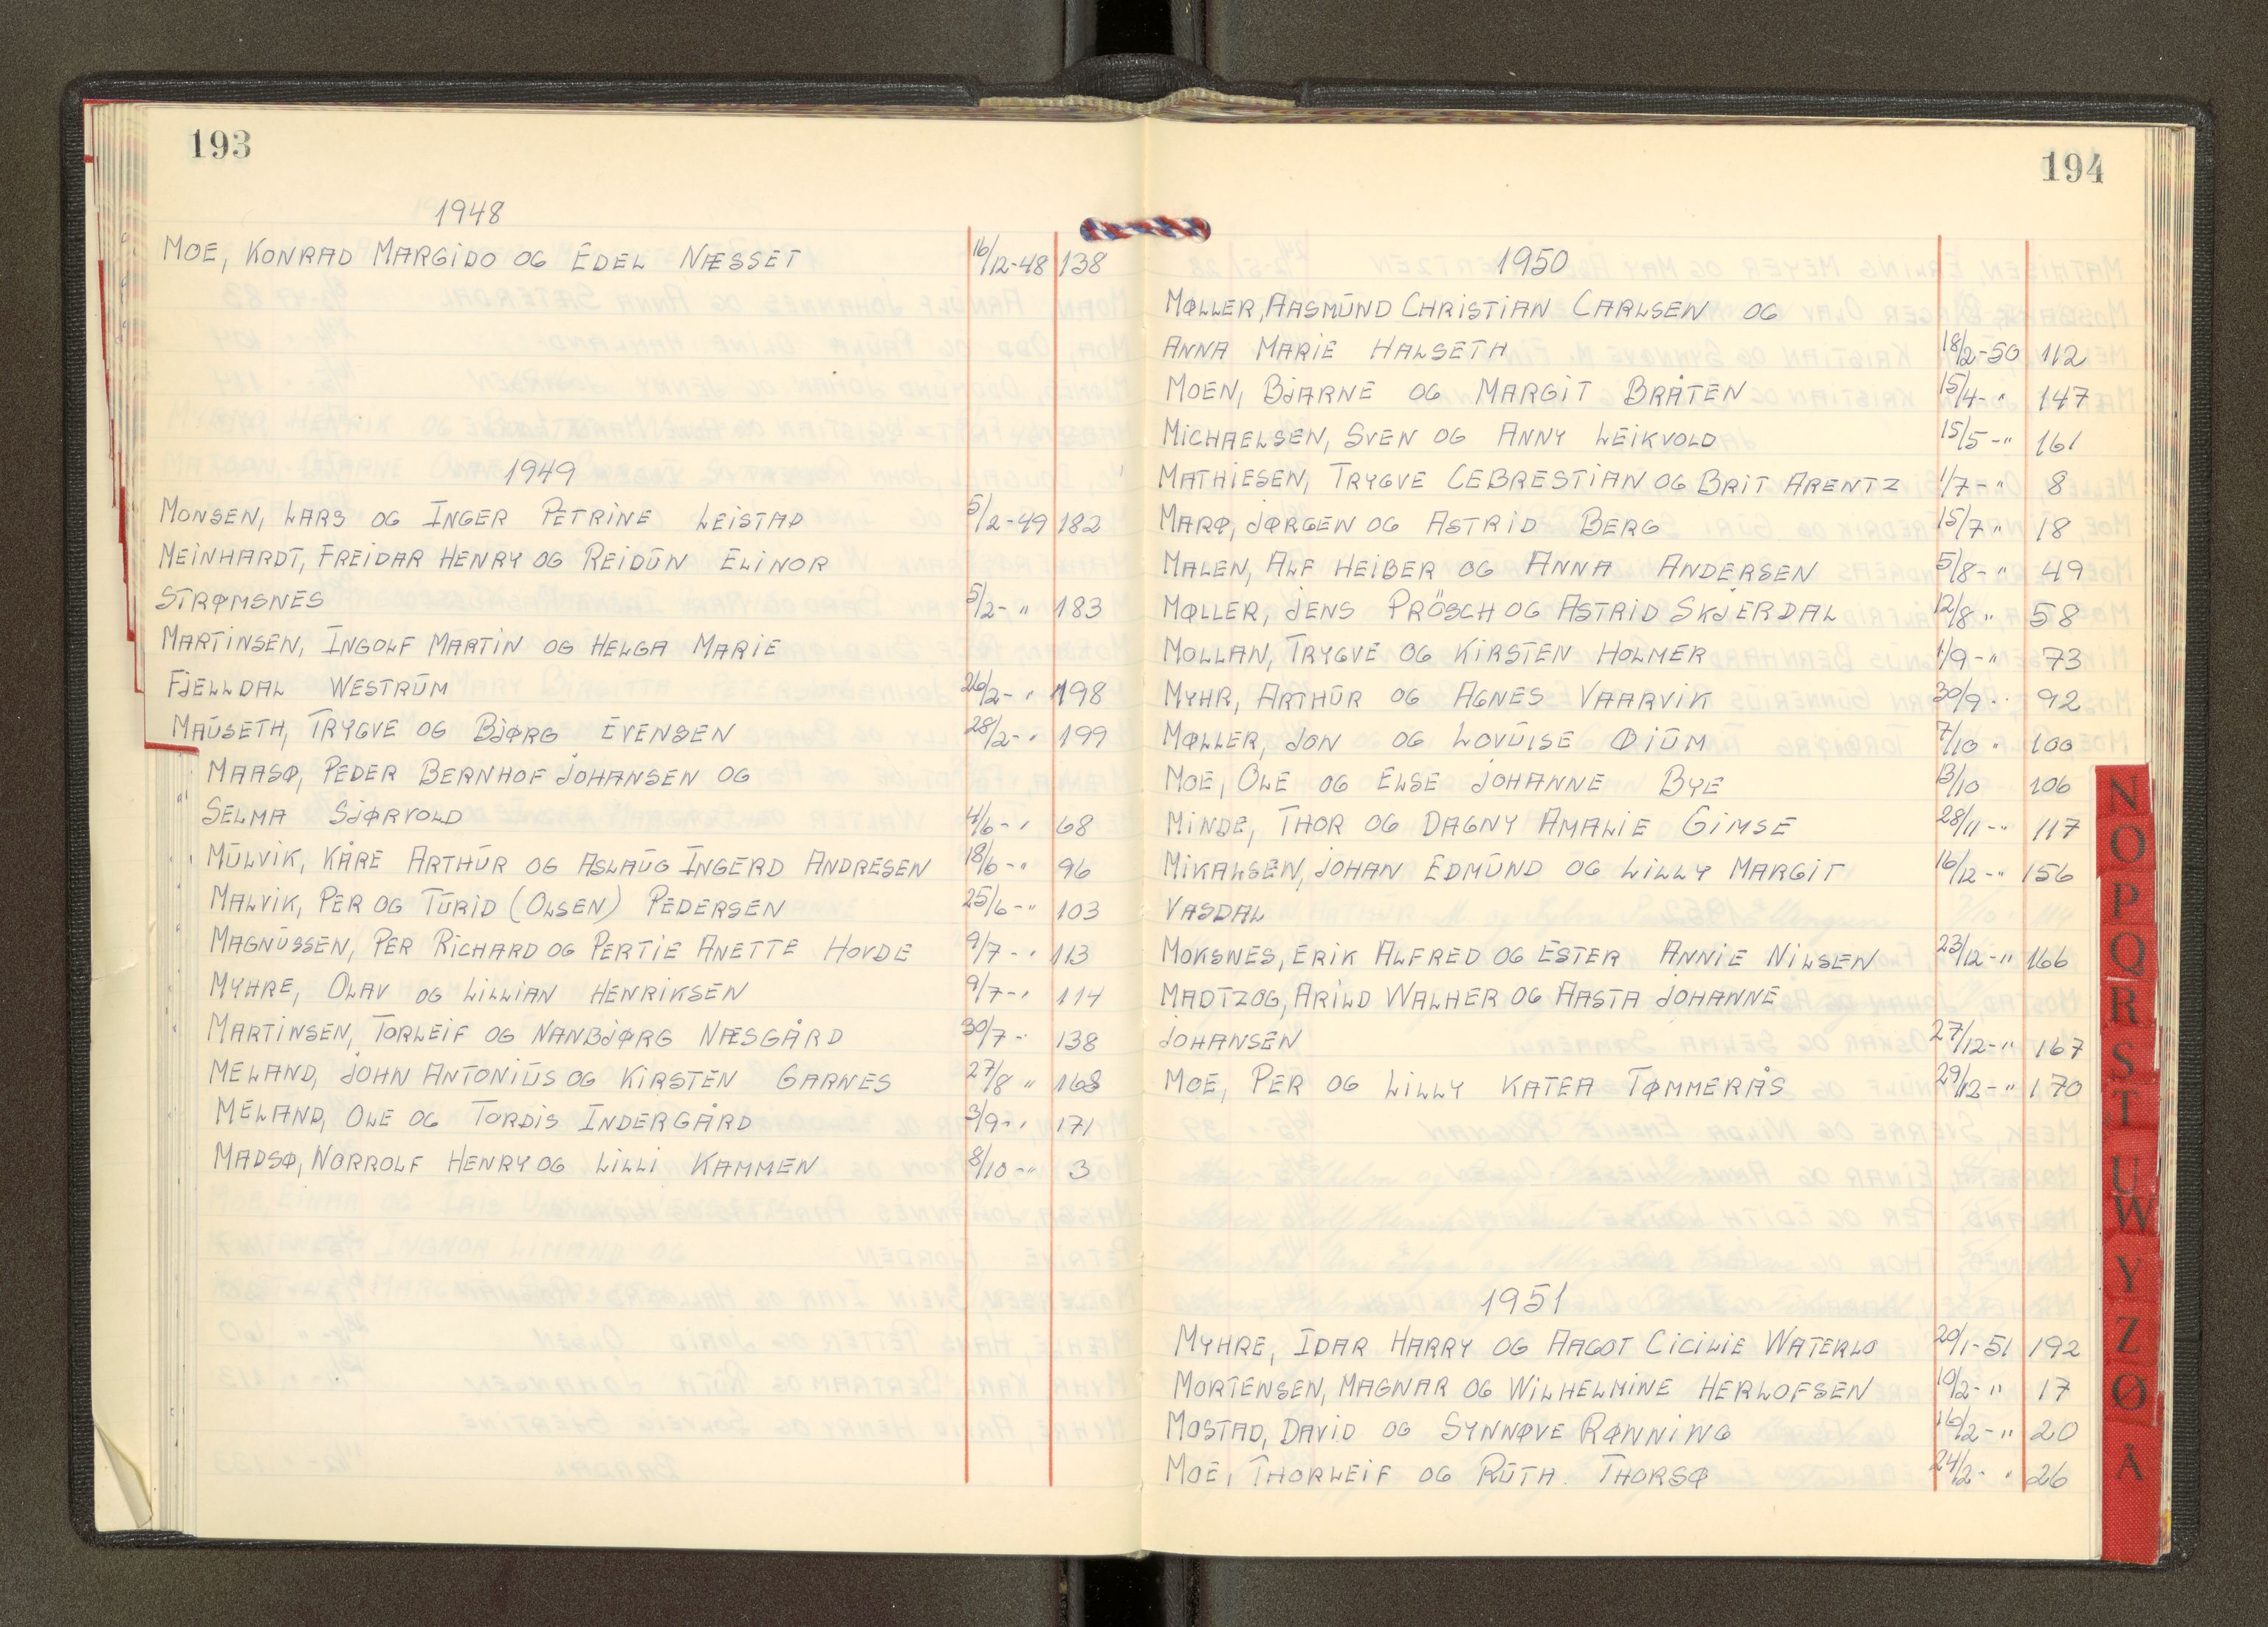 193
1948
MOE, KONRAD MARGIDO OG EDEL NÆSSET 16/12-48 138
1949
MONSEN, LARS OG INGER PETRINE LEISTAD 5/2-49 182
MEINHARDT, FREIDAR HENRY OG REIDŪN ELINOR
STRØMSNES 5/2- " 183
MARTINSEN, INGOLF MARTIN OG HELGA MARIE
FJELLDAL WESTRŪM 26/2- " 198
MAŪSETH, TRYGVE OG BJØRG EVENSEN 28/2- " 199
MAASØ, PEDER BERNHOF JOHANSEN OG
SELMA SJØRVOLD 4/6- " 68
MŪLVIK, KÅRE ARTHŪR OG ASLAŪG INGERD ANDRESEN 18/6- " 96
MALVIK, PER OG TŪRID (OLSEN) PEDERSEN 25/6- " 103
MAGNŪSSEN, PER RICHARD OG PERTIE ANETTE HOVDE 9/7- " 113
MYHRE, OLAV OG LILLIAN HENRIKSEN 9/7- " 114
MARTINSEN, TORLEIF OG NANBJØRG NÆSGÅRD 30/7- 138
MELAND, JOHN ANTONIŪS OG KIRSTEN GARNES 27/8 " 168
MELAND, OLE OG TORDIS INDERGÅRD 3/9- " 171
MADSØ, NORROLF HENRY OG LILLI KAMMEN 8/10- " 3
194
1950
MØLLER, AASMŪND CHRISTIAN CARLSEN OG
ANNA MARIE HALSETH 18/2-50 112
MOEN, BJARNE OG MARGIT BRÅTEN 15/4- " 147
MICHAELSEN, SVEN OG ANNY LEIKVOLD 15/5- " 161
MATHIESEN, TRYGVE CEBRESTIAN OG BRIT ARENTZ 1/7- " 8
MARØ, JØRGEN OG ASTRID BERG 15/7 " 18
MALEN, ALF HEIBER OG ANNA ANDERSEN 5/8- " 49
MØLLER, JENS PRÖSCH OG ASTRID SKJERDAL 12/8 " 58
MOLLAN, TRYGVE OG KIRSTEN HOLMER 1/9- " 73
MYHR, ARTHŪR OG AGNES VAARVIK 30/9 " 92
MØLLER, JON OG LOVŪISE ØIŪM 7/10 " 100
MOE, OLE OG ELSE JOHANNE BYE 13/10 106
MINDE, THOR OG DAGNY AMALIE GIMSE 28/11- " 117
MIKALSEN, JOHAN EDMŪND OG LILLY MARGIT 16/12- " 156
VASDAL
MOKSNES, ERIK ALFRED OG ESTER ANNIE NILSEN 23/12- " 166
MADTZOG, ARILD WALHER OG AASTA JOHANNE
JOHANSEN 27/12- " 167
MOE, PER OG LILLY KATEA TØMMERÅS 29/12- " 170
1951
MYHRE, IDAR HARRY OG AAGOT CICILIE WATERLO 20/1-51 192
MORTENSEN, MAGNAR OG WILHELMINE HERLOFSEN 10/2- " 17
MOSTAD, DAVID OG SYNNØVE RØNNING 16/2- " 20
MOE, THORLEIF OG RŪTH. THORSØ 24/2- " 26
N
O
P
Q
R
S
T
U
W
Y
Z
Ø
A